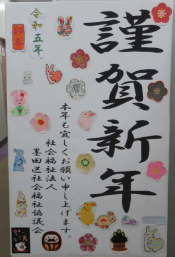 謹賀新年
令和五年
本年も宜しくお願い申し上げます。
社会福祉法人
墨田区社会福祉協議会